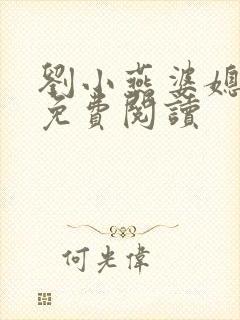 劉小燕婆媳
免費閱讀
何光偉